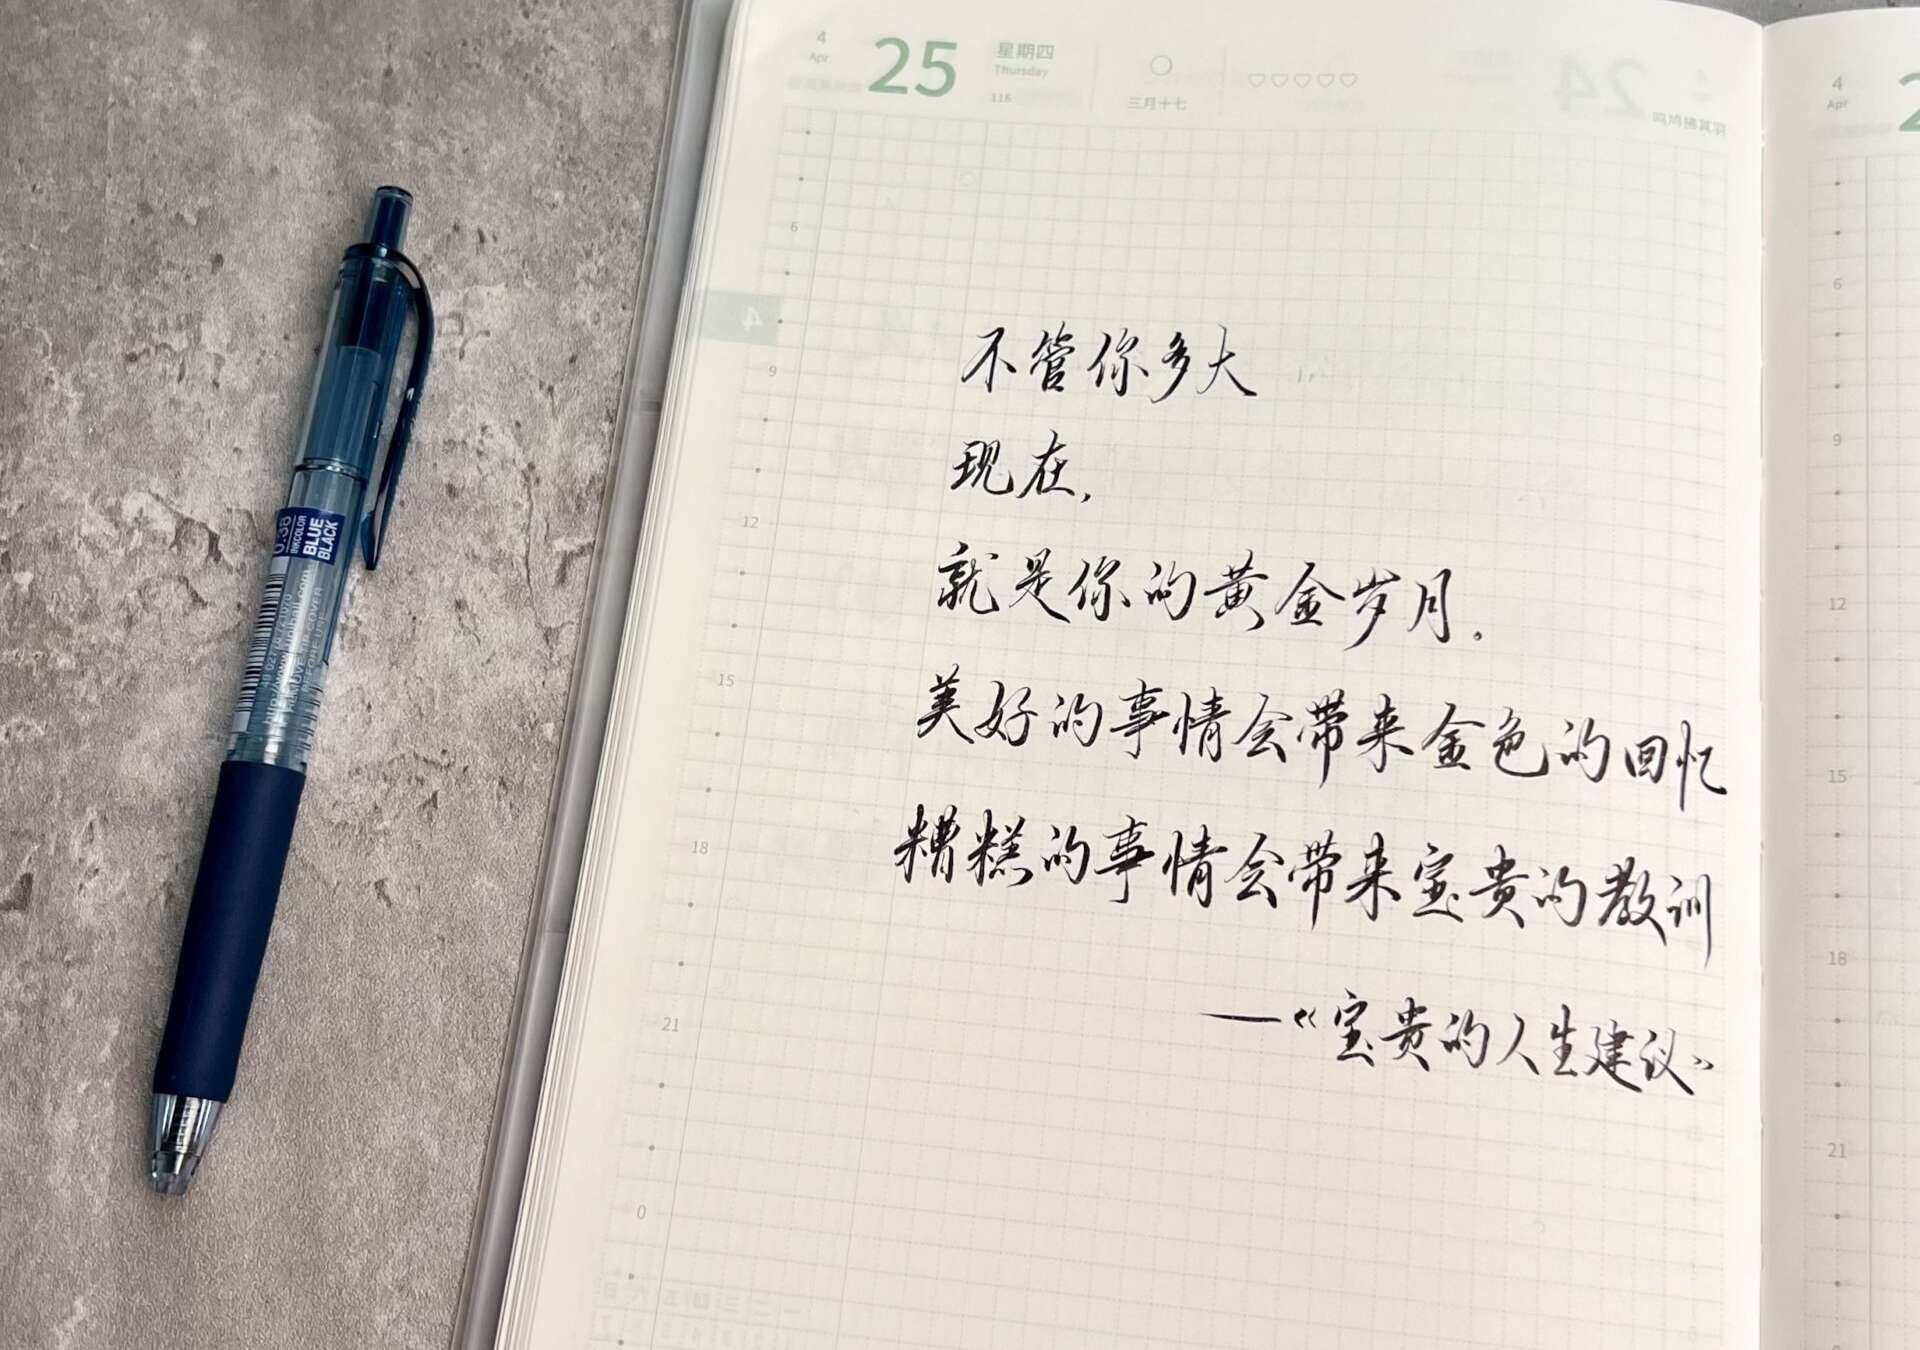 4
Apr
25
星期四
Thursday
116
三月十七
6
9
12
15
18
21
0
不管你多大
现在,
就是你的黄金岁月.
美好的事情会带来金色的回忆
糟糕的事情会带来宝贵的教训
—《宝贵的人生建议》
4
Apr
2
6
9
12
15
18
21
0.38
INKCOLOR
BLUE
BLACK
REMOVE THIS COVER
BEFORE USE